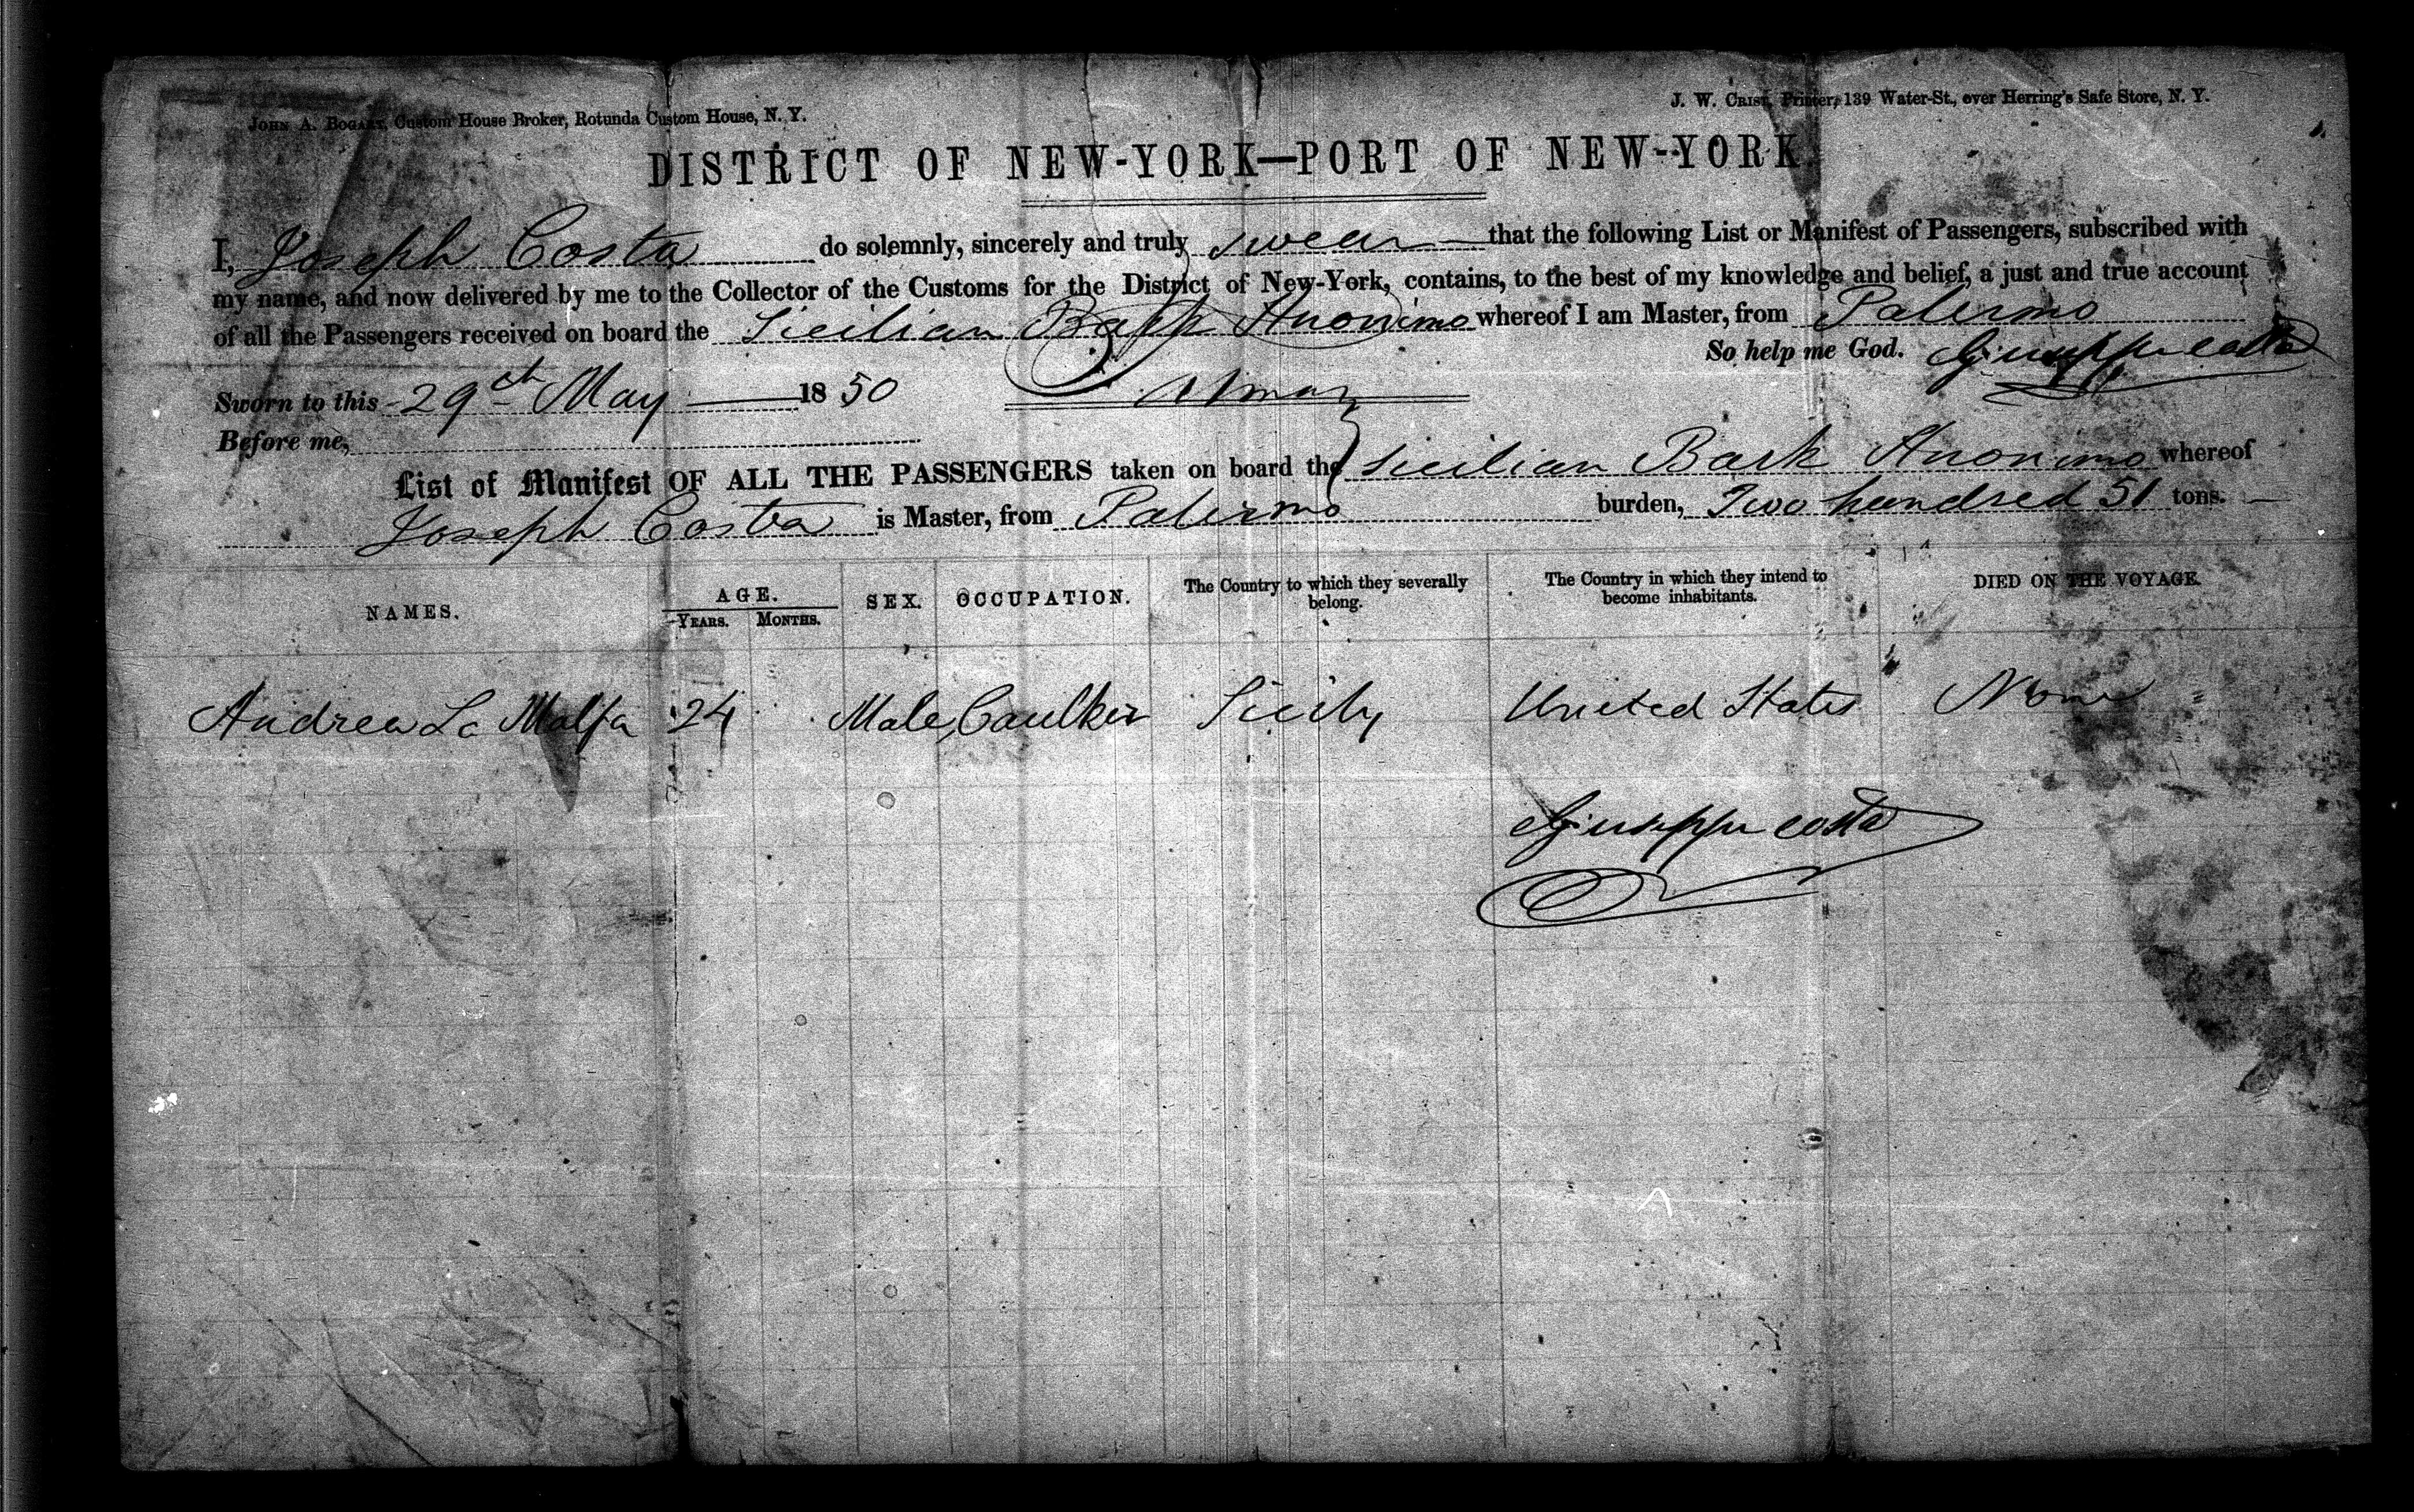 JOHN A. BOGART, Custom House Broker, Rotunda Custom House, N. Y.
J. W. CRIST, Printer, 139 Water-St., over Herring's Safe Store, N. Y.
DISTRICT OF NEW-YORK—PORT OF NEW-YORK.
I, Joseph Costa do solemnly, sincerely and truly swear that the following List or Manifest of Passengers, subscribed with
my name, and now delivered by me to the Collector of the Customs for the District of New-York, contains, to the best of my knowledge and belief, a just and true account
of all the Passengers received on board the Sicilian Bark Anonimo whereof I am Master, from Palermo
So help me God. Giuseppe Costa
Sworn to this 29th May 1850
Before me,
List of Manifest OF ALL THE PASSENGERS taken on board the Sicilian Bark Anonimo whereof
Joseph Costa is Master, from Palermo burden, Two hundred 51 tons.
NAMES. AGE. SEX. OCCUPATION. The Country to which they severally belong. The Country in which they intend to become inhabitants. DIED ON THE VOYAGE.
YEARS. MONTHS.
Andrea La Malfa 24 Male, Caulker Sicily United States None
Giuseppe Costa